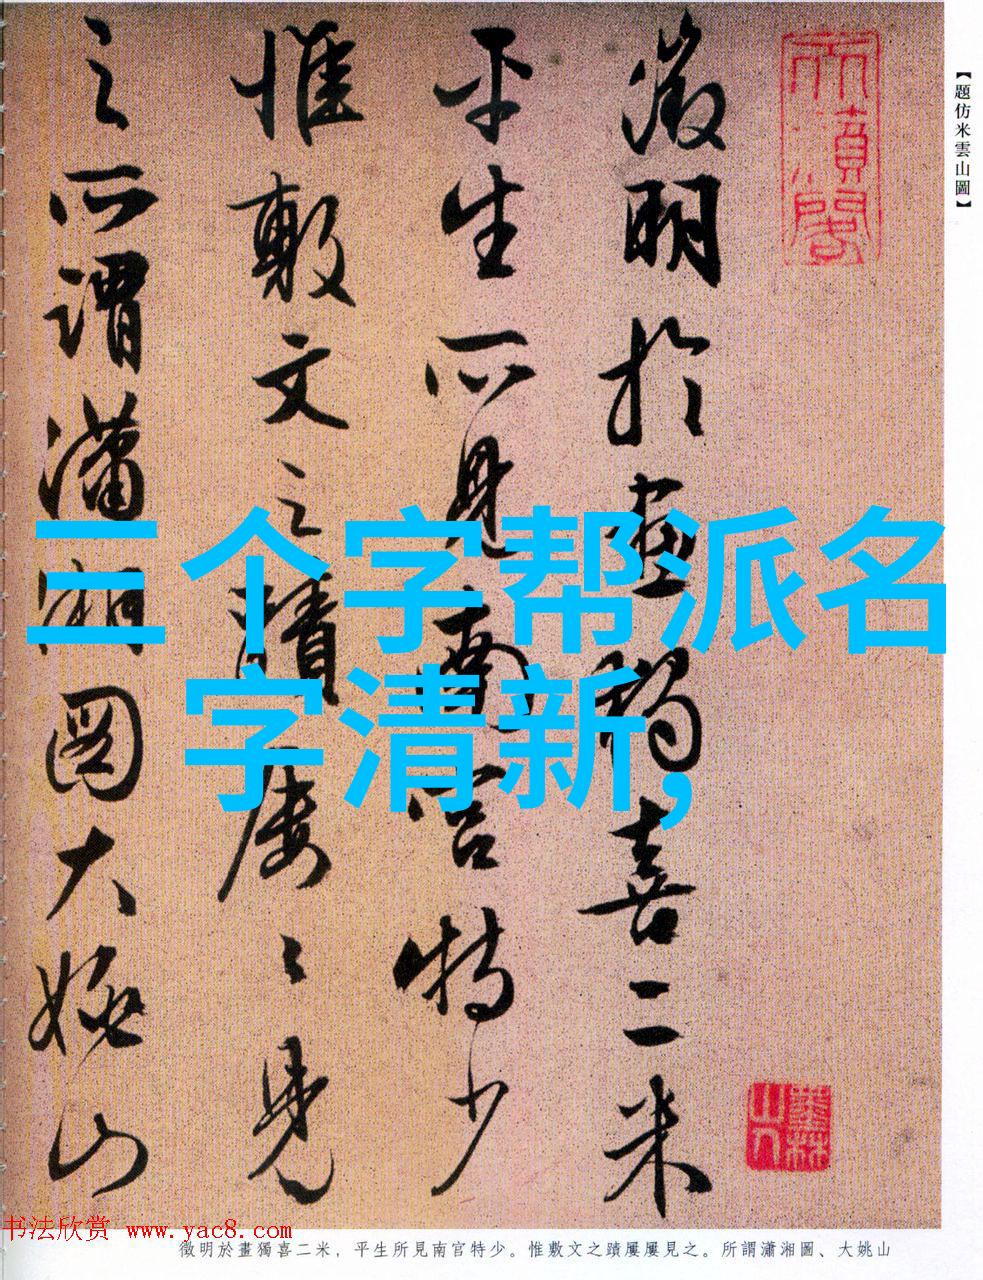 【題仿米雲山圖】
徵明於畫獨喜二米
平生所見南宫特少
惟敷文之蹟屢〻見
之所謂瀟湘图大姚山
三个字帮派名
字清新,
墨林山人
书法欣赏 www.yac8.com
徵明於畫獨喜二米，平生所見南官特少。惟敷文之蹟屢屢見之。所謂瀟湘圖、大姚山